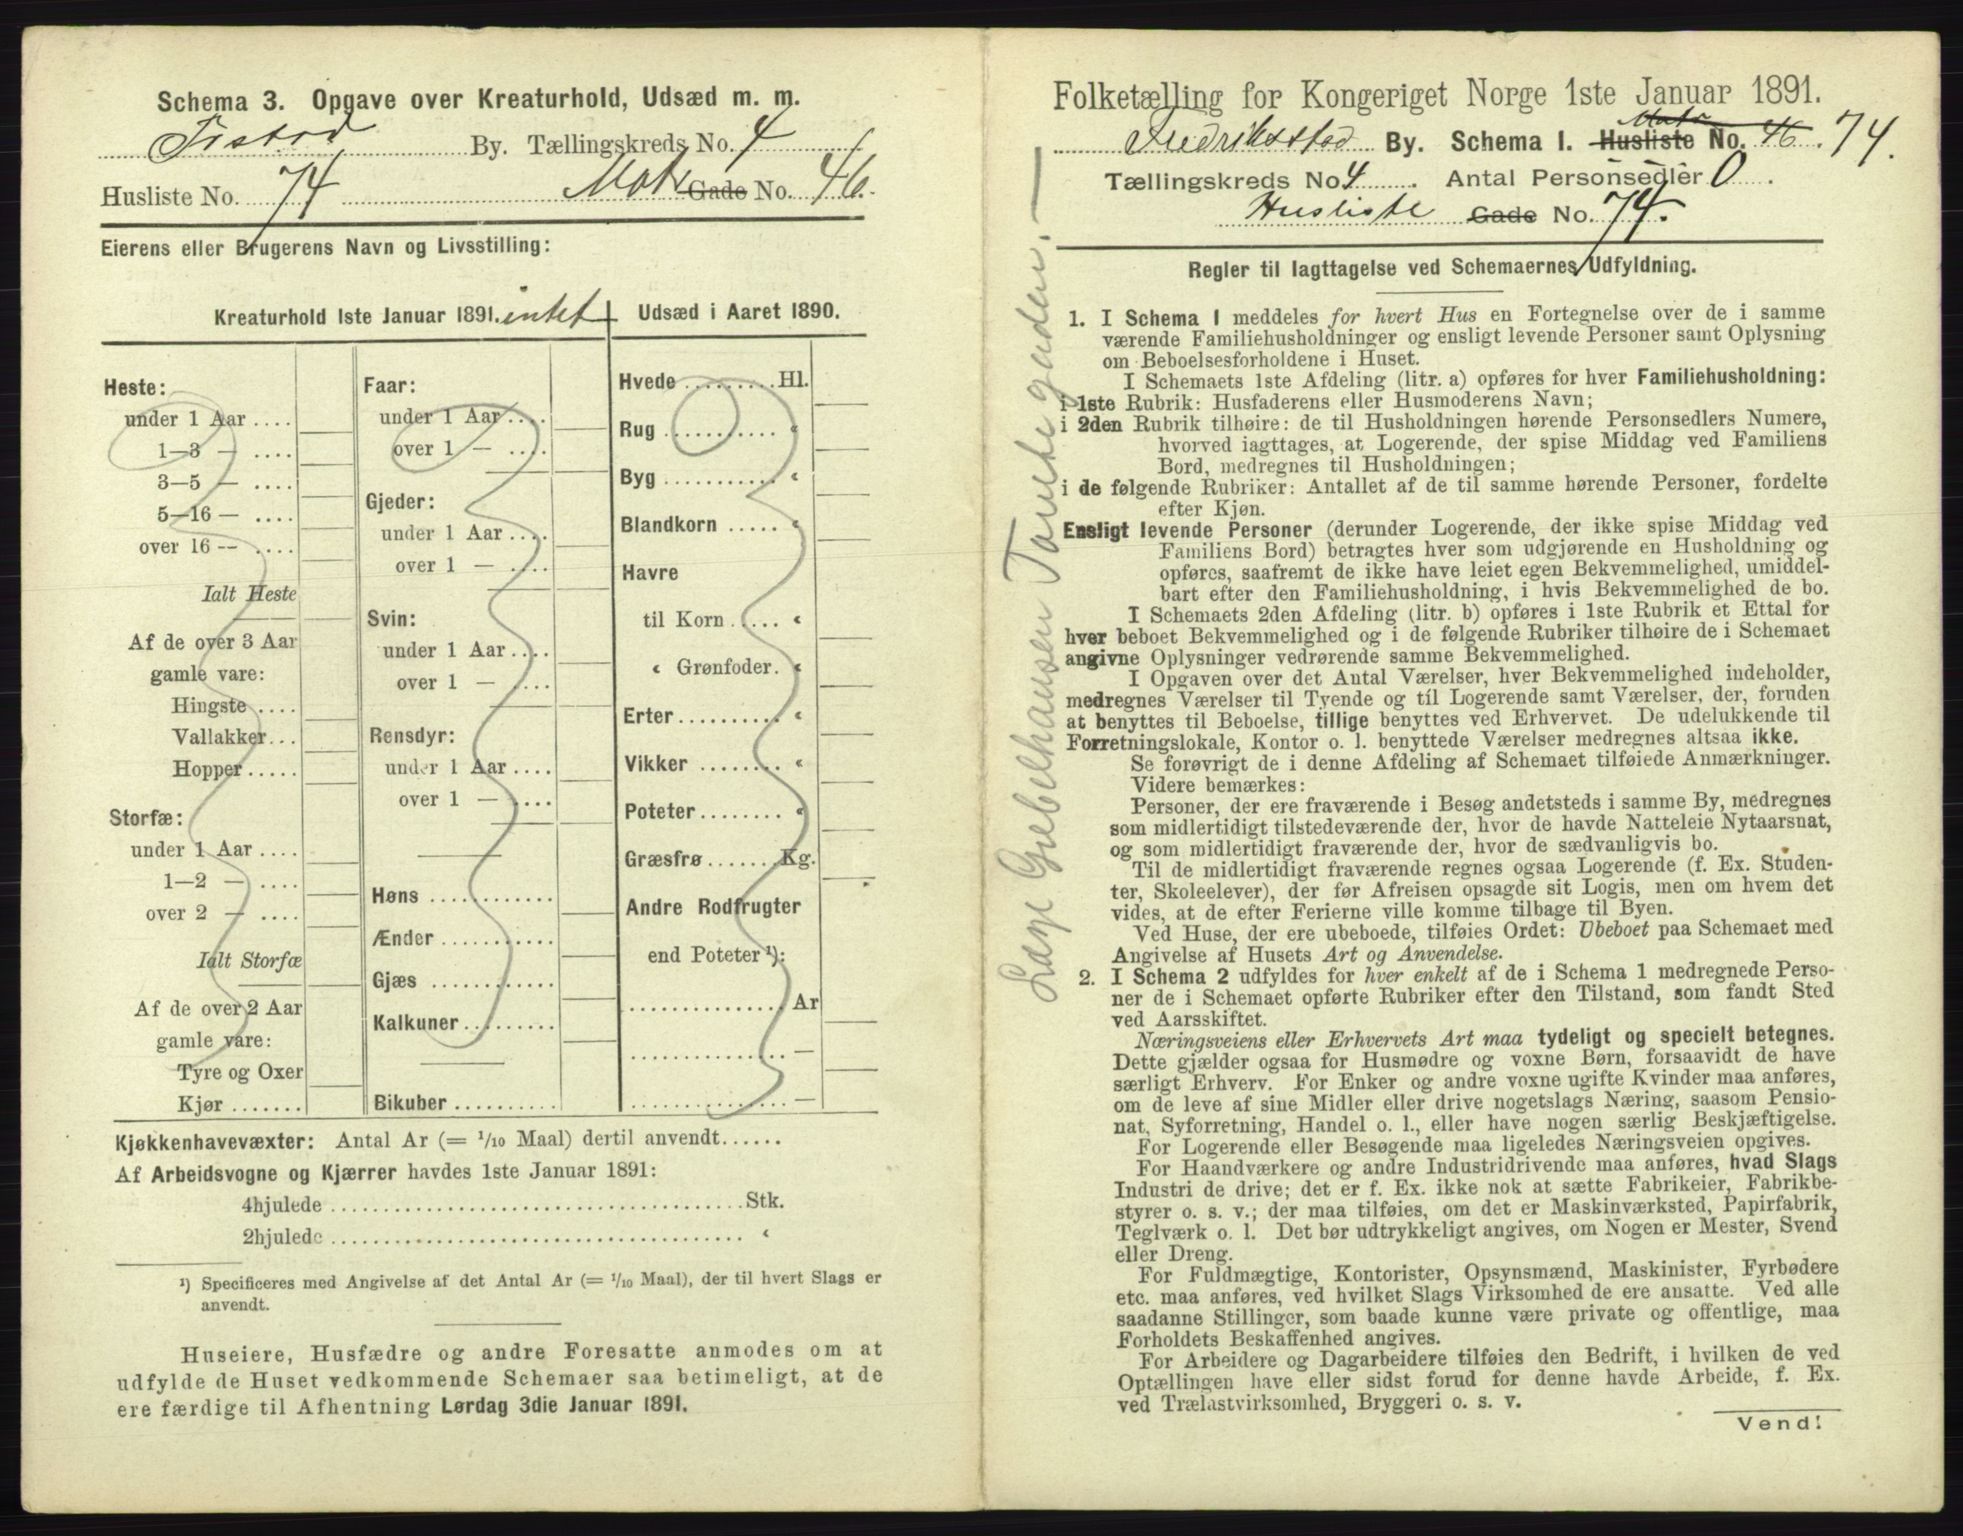 Schema 3. Opgave over Kreaturhold, Udsæd m. m.
Frstad By. Tællingskreds No. 4
Husliste No. 74 Matr Gade No. 46.
Eierens eller Brugerens Navn og Livsstilling:
Kreaturhold 1ste Januar 1891. intet
Heste:
under 1 Aar ....
1—3 — ....
3—5 — ....
5—16 — ....
over 16 -- ....
Ialt Heste
Af de over 3 Aar
gamle vare:
Hingste ....
Vallakker...
Hopper.....
Storfæ:
under 1 Aar ....
1—2 — ....
over 2 — ....
Ialt Storfæ
Af de over 2 Aar
gamle vare:
Tyre og Oxer
Kjør .......
Faar:
under 1 Aar ....
over 1 — ....
Gjeder:
under 1 Aar ....
over 1 — ....
Svin:
under 1 Aar ....
over 1 — ....
Rensdyr:
under 1 Aar ....
over 1 — ....
Høns ............
Ænder ...........
Gjæs ............
Kalkuner.........
Bikuber ..........
Udsæd i Aaret 1890.
Hvede .......... Hl.
Rug ........... «
Byg ........... «
Blandkorn ..... «
Havre
til Korn ..... «
« Grønfoder. «
Erter.......... «
Vikker ........ «
Poteter........ «
Græsfrø ....... Kg.
Andre Rodfrugter
end Poteter ¹):
............... Ar
............... —
............... —
Kjøkkenhavevæxter: Antal Ar (= 1/10 Maal) dertil anvendt......
Af Arbeidsvogne og Kjærrer havdes 1ste Januar 1891:
4hjulede ........................................ Stk.
2hjulede ........................................ «
¹) Specificeres med Angivelse af det Antal Ar (= 1/10 Maal), der til hvert Slags er
anvendt.
Huseiere, Husfædre og andre Foresatte anmodes om at
udfylde de Huset vedkommende Schemaer saa betimeligt, at de
ere færdige til Afhentning Lørdag 3die Januar 1891.
Folketælling for Kongeriget Norge 1ste Januar 1891.
Matr
Fredriksstad By. Schema I. Husliste No. 46. 74.
Tællingskreds No. 4 . Antal Personsedler 0 .
Husliste Gade No. 74.
Regler til Iagttagelse ved Schemaernes Udfyldning.
1. I Schema 1 meddeles for hvert Hus en Fortegnelse over de i samme
værende Familiehusholdninger og ensligt levende Personer samt Oplysning
om Beboelsesforholdene i Huset.
I Schemaets 1ste Afdeling (litr. a) opføres for hver Familiehusholdning:
i 1ste Rubrik: Husfaderens eller Husmoderens Navn;
i 2den Rubrik tilhøire: de til Husholdningen hørende Personsedlers Numere,
hvorved iagttages, at Logerende, der spise Middag ved Familiens
Bord, medregnes til Husholdningen;
i de følgende Rubriker: Antallet af de til samme hørende Personer, fordelte
efter Kjøn.
Ensligt levende Personer (derunder Logerende, der ikke spise Middag ved
Familiens Bord) betragtes hver som udgjørende en Husholdning og
opføres, saafremt de ikke have leiet egen Bekvemmelighed, umiddel-
bart efter den Familiehusholdning, i hvis Bekvemmelighed de bo.
I Schemaets 2den Afdeling (litr. b) opføres i 1ste Rubrik et Ettal for
hver beboet Bekvemmelighed og i de følgende Rubriker tilhøire de i Schemaet
angivne Oplysninger vedrørende samme Bekvemmelighed.
I Opgaven over det Antal Værelser, hver Bekvemmelighed indeholder,
medregnes Værelser til Tyende og til Logerende samt Værelser, der, foruden
at benyttes til Beboelse, tillige benyttes ved Erhvervet. De udelukkende til
Forretningslokale, Kontor o. l. benyttede Værelser medregnes altsaa ikke.
Se forøvrigt de i denne Afdeling af Schemaet tilføiede Anmærkninger.
Videre bemærkes:
Personer, der ere fraværende i Besøg andetsteds i samme By, medregnes
som midlertidigt tilstedeværende der, hvor de havde Natteleie Nytaarsnat,
og som midlertidigt fraværende der, hvor de sædvanligvis bo.
Til de midlertidigt fraværende regnes ogsaa Logerende (f. Ex. Studen-
ter, Skoleelever), der før Afreisen opsagde sit Logis, men om hvem det
vides, at de efter Ferierne ville komme tilbage til Byen.
Ved Huse, der ere ubeboede, tilføies Ordet: Ubeboet paa Schemaet med
Angivelse af Husets Art og Anvendelse.
2. I Schema 2 udfyldes for hver enkelt af de i Schema 1 medregnede Perso-
ner de i Schemaet opførte Rubriker efter den Tilstand, som fandt Sted
ved Aarsskiftet.
Næringsveiens eller Erhvervets Art maa tydeligt og specielt betegnes.
Dette gjælder ogsaa for Husmødre og voxne Børn, forsaavidt de have
særligt Erhverv. For Enker og andre voxne ugifte Kvinder maa anføres,
om de leve af sine Midler eller drive nogetslags Næring, saasom Pensio-
nat, Syforretning, Handel o. l., eller have nogen særlig Beskjæftigelse.
For Logerende eller Besøgende maa ligeledes Næringsveien opgives.
For Haandværkere og andre Industridrivende maa anføres, hvad Slags
Industri de drive; det er f. Ex. ikke nok at sætte Fabrikeier, Fabrikbe-
styrer o. s. v.; der maa tilføies, om det er Maskinværksted, Papirfabrik,
Teglværk o. l. Det bør udtrykkeligt angives, om Nogen er Mester, Svend
eller Dreng.
For Fuldmægtige, Kontorister, Opsynsmænd, Maskinister, Fyrbødere
etc. maa anføres, ved hvilket Slags Virksomhed de ere ansatte. Ved alle
saadanne Stillinger, som baade kunne være private og offentlige, maa
Forholdets Beskaffenhed angives.
For Arbeidere og Dagarbeidere tilføies den Bedrift, i hvilken de ved
Optællingen have eller sidst forud for denne havde Arbeide, f. Ex.
ved Trælastvirksomhed, Bryggeri o. s. v.
Vend!